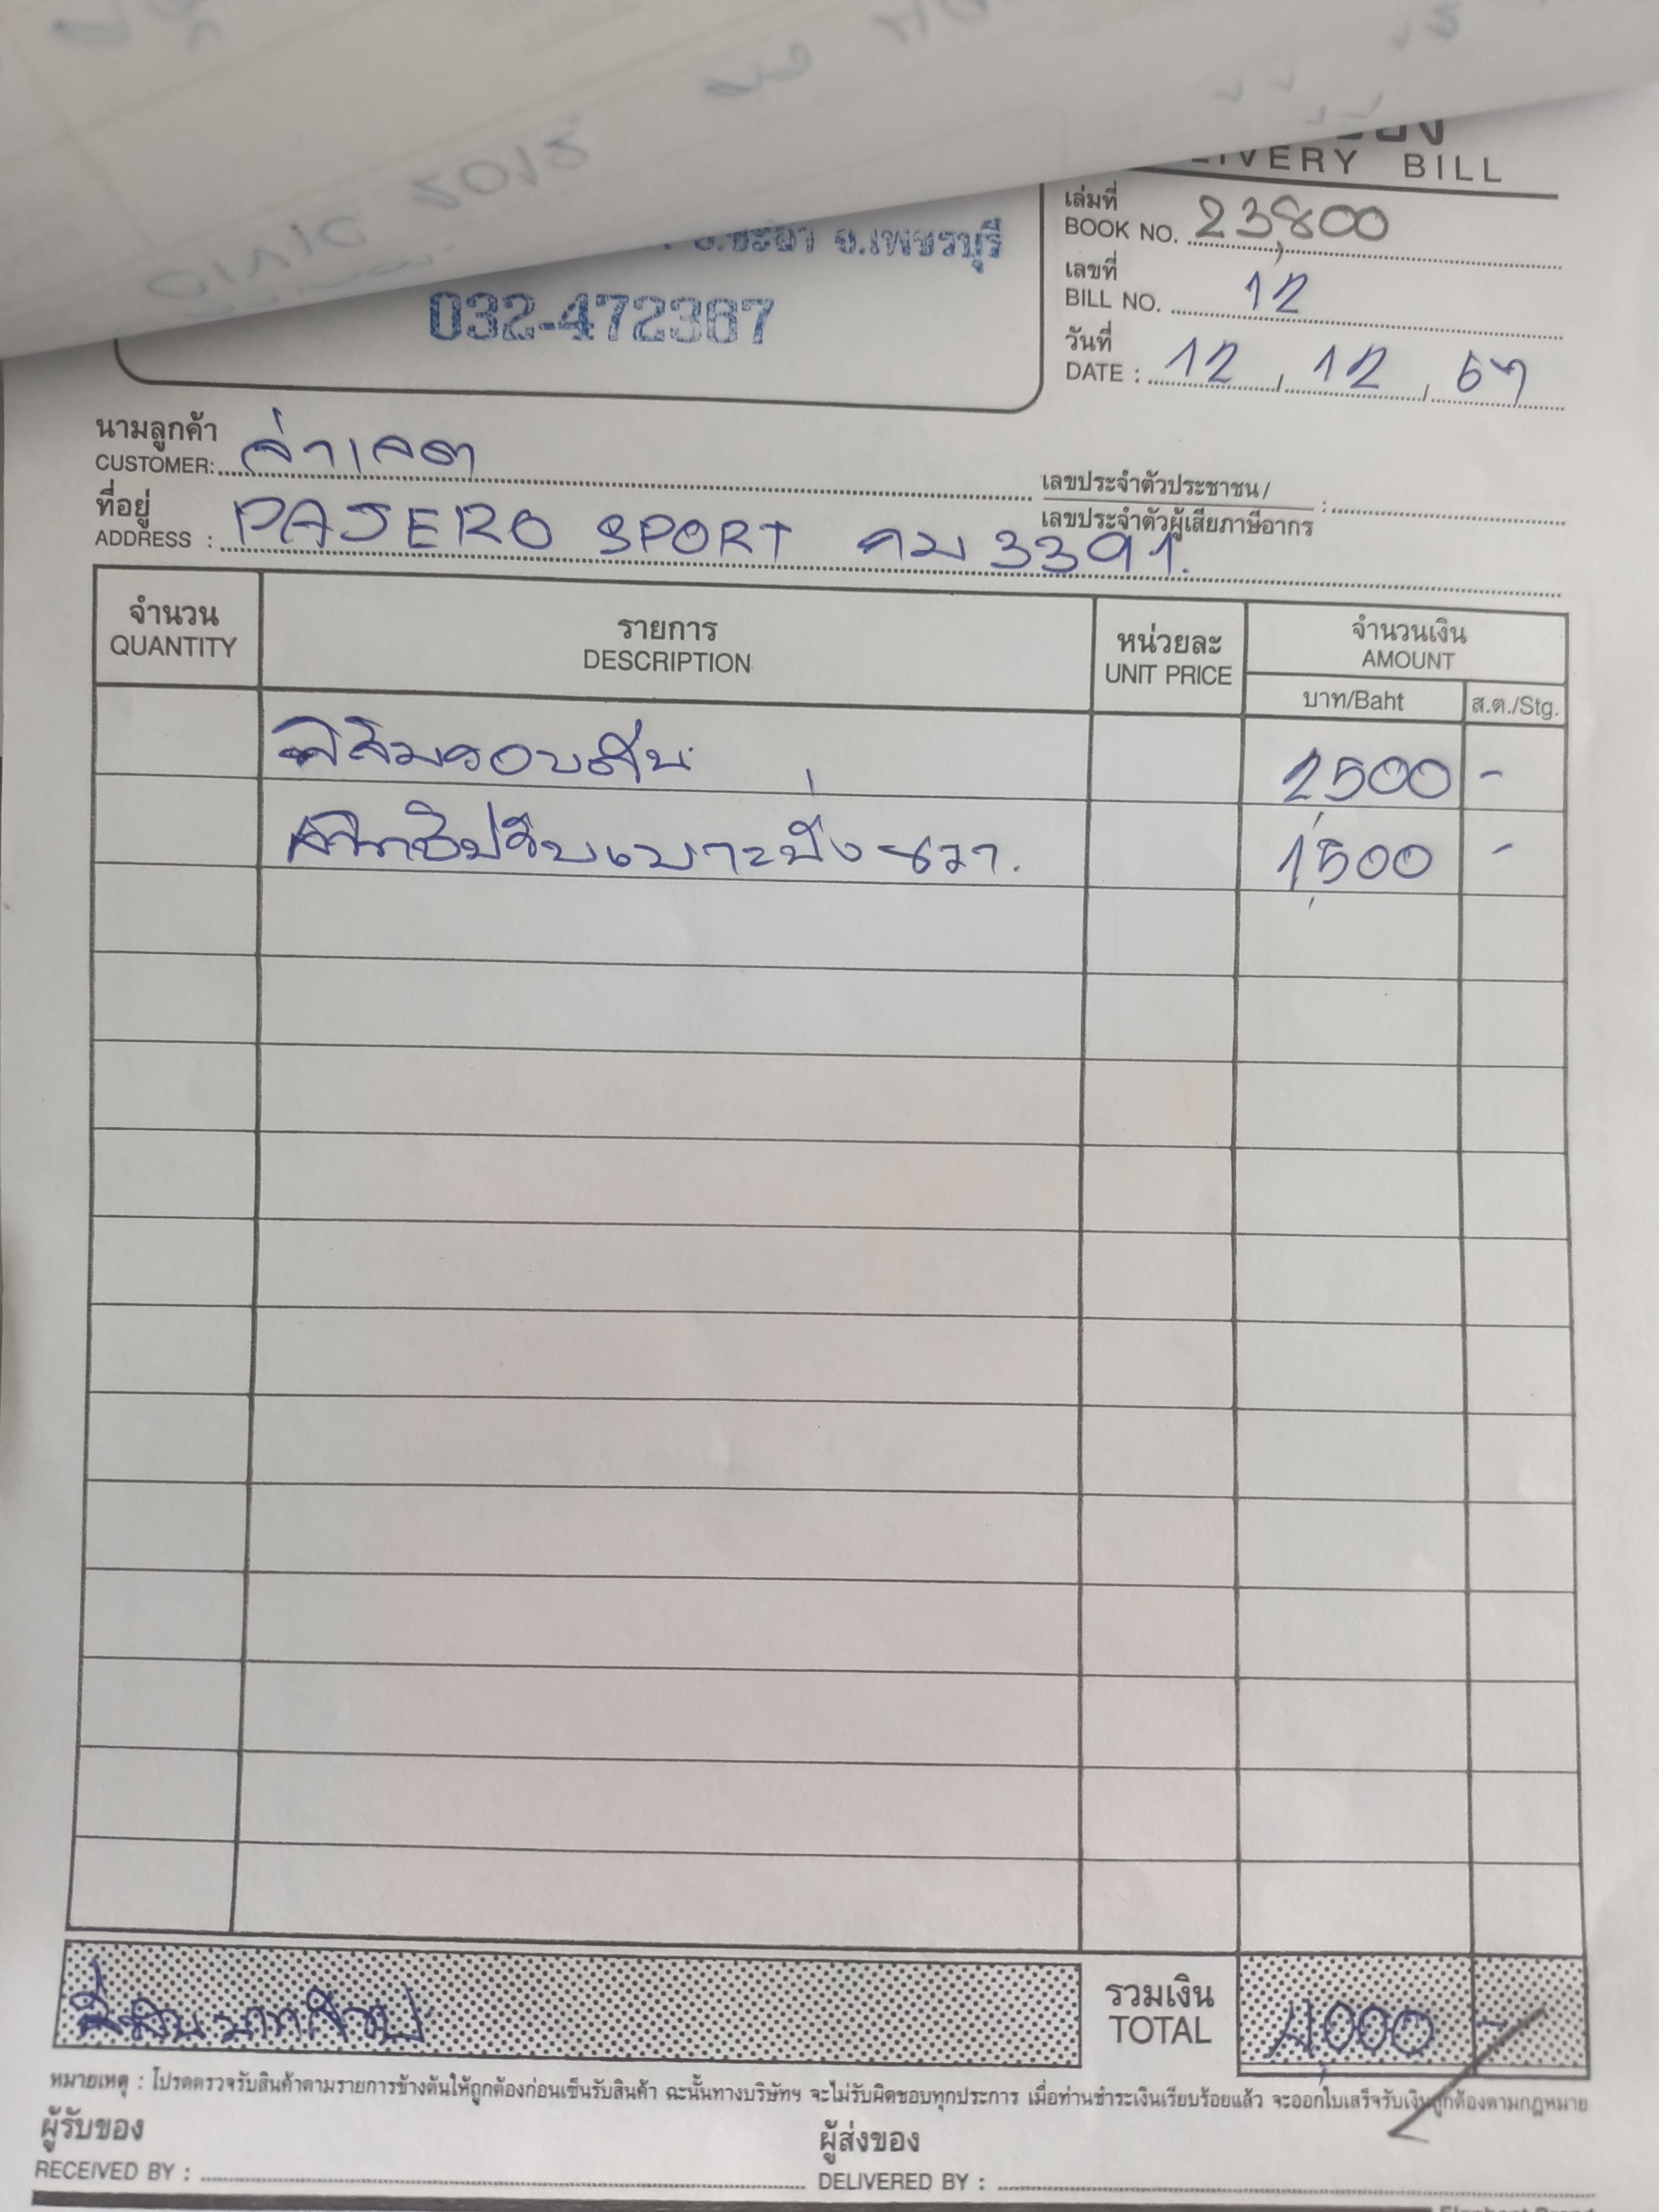 CIVIC 2018
DELIVERY BILL
อ.ชะอำ จ.เพชรบุรี
032-472387
เล่มที่
BOOK NO. 23,800
เลขที่
BILL NO. 12
วันที่
DATE : 12 / 12 / 67
นามลูกค้า
CUSTOMER: จ่าเจต
เลขประจำตัวประชาชน /
เลขประจำตัวผู้เสียภาษีอากร :
ที่อยู่
ADDRESS : PAJERO SPORT กม 3391.
จำนวน รายการ หน่วยละ จำนวนเงิน
QUANTITY DESCRIPTION UNIT PRICE AMOUNT
บาท/Baht ส.ต./Stg.
ฟิล์มรอบคัน 2,500 -
สวิทช์ปรับเบาะนั่งขวา. 1,500 -
สี่พันบาทถ้วน รวมเงิน 4,000 -
TOTAL
หมายเหตุ : โปรดตรวจรับสินค้าตามรายการข้างต้นให้ถูกต้องก่อนเซ็นรับสินค้า ฉะนั้นทางบริษัทฯ จะไม่รับผิดชอบทุกประการ เมื่อท่านชำระเงินเรียบร้อยแล้ว จะออกใบเสร็จรับเงินถูกต้องตามกฎหมาย
ผู้รับของ ผู้ส่งของ
RECEIVED BY : DELIVERED BY :